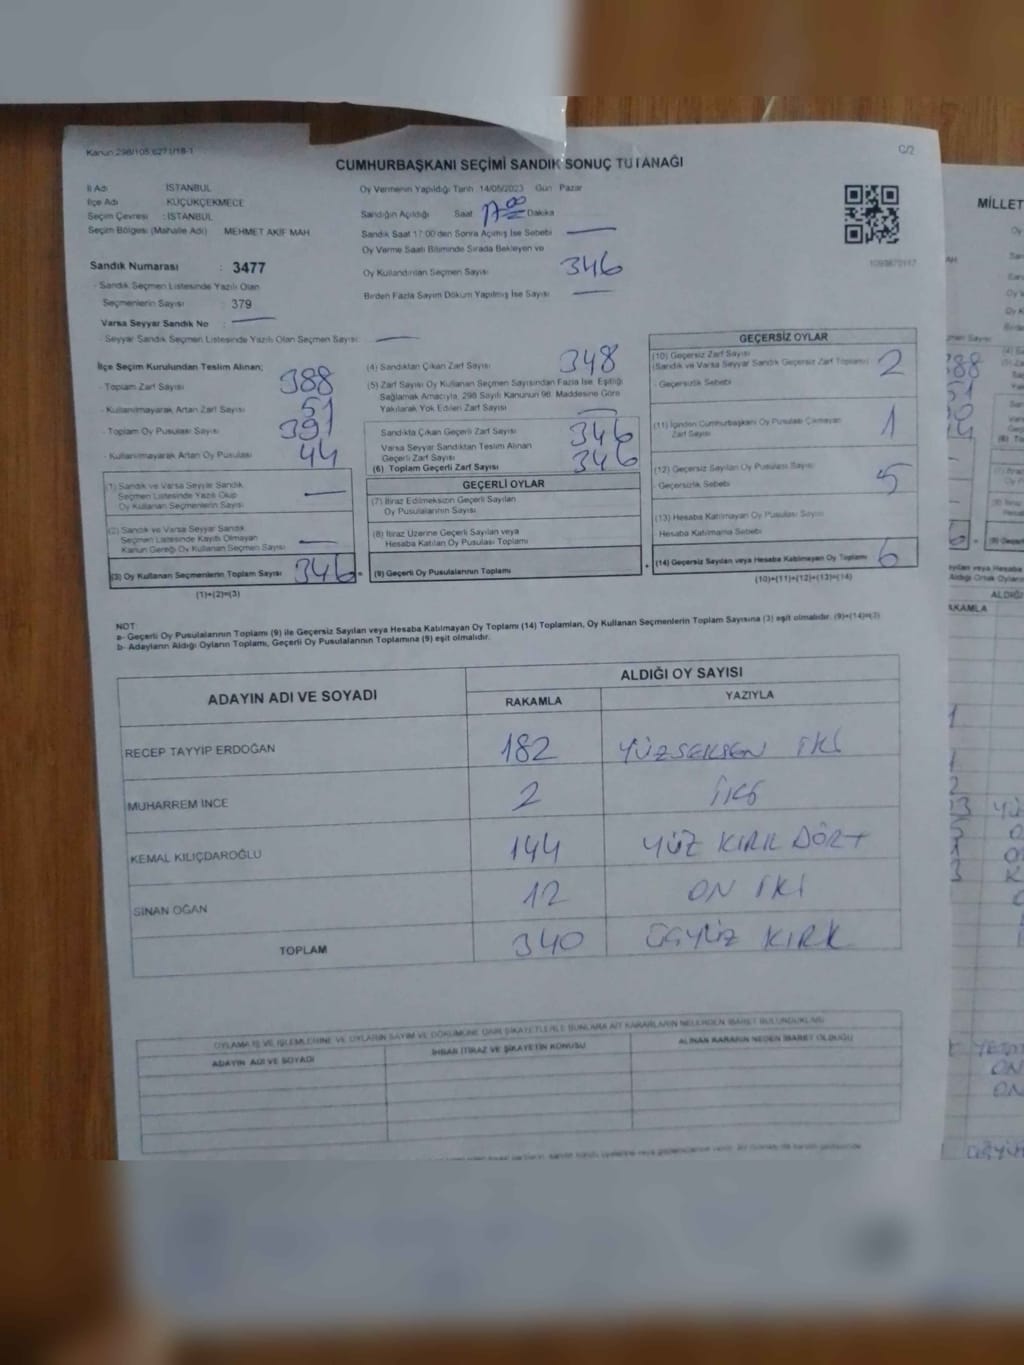 Kanun:298/105,6271/18-1
C/2
CUMHURBAŞKANI SEÇİMİ SANDIK SONUÇ TUTANAĞI
İl Adı : İSTANBUL
İlçe Adı : KÜÇÜKÇEKMECE
Seçim Çevresi : İSTANBUL
Seçim Bölgesi (Mahalle Adı) MEHMET AKİF MAH
Sandık Numarası : 3477
- Sandık Seçmen Listesinde Yazılı Olan
Seçmenlerin Sayısı : 379
Varsa Seyyar Sandık No :
- Seyyar Sandık Seçmen Listesinde Yazılı Olan Seçmen Sayısı:
Oy Vermenin Yapıldığı Tarih 14/05/2023 Gün Pazar
Sandığın Açıldığı Saat 17:00 Dakika
Sandık Saat 17:00'den Sonra Açılmış İse Sebebi
Oy Verme Saati Bitiminde Sırada Bekleyen ve
Oy Kullandırılan Seçmen Sayısı 346
Birden Fazla Sayım Döküm Yapılmış İse Sayısı
İlçe Seçim Kurulundan Teslim Alınan;
- Toplam Zarf Sayısı 388
- Kullanılmayarak Artan Zarf Sayısı 51
- Toplam Oy Pusulası Sayısı 391
- Kullanılmayarak Artan Oy Pusulası 44
(1) Sandık ve Varsa Seyyar Sandık
Seçmen Listesinde Yazılı Olup
Oy Kullanan Seçmenlerin Sayısı
(2) Sandık ve Varsa Seyyar Sandık
Seçmen Listesinde Kayıtlı Olmayan
Kanun Gereği Oy Kullanan Seçmen Sayısı
(3) Oy Kullanan Seçmenlerin Toplam Sayısı 346
(1)+(2)=(3)
(4) Sandıktan Çıkan Zarf Sayısı 348
(5) Zarf Sayısı Oy Kullanan Seçmen Sayısından Fazla İse, Eşitliği
Sağlamak Amacıyla, 298 Sayılı Kanunun 98. Maddesine Göre
Yakılarak Yok Edilen Zarf Sayısı
Sandıkta Çıkan Geçerli Zarf Sayısı 346
Varsa Seyyar Sandıktan Teslim Alınan
Geçerli Zarf Sayısı
(6) Toplam Geçerli Zarf Sayısı 346
GEÇERLİ OYLAR
(7) İtiraz Edilmeksizin Geçerli Sayılan
Oy Pusulalarının Sayısı
(8) İtiraz Üzerine Geçerli Sayılan veya
Hesaba Katılan Oy Pusulası Toplamı
(9) Geçerli Oy Pusulalarının Toplamı
GEÇERSİZ OYLAR
(10) Geçersiz Zarf Sayısı
(Sandık ve Varsa Seyyar Sandık Geçersiz Zarf Toplamı) 2
Geçersizlik Sebebi
(11) İçinden Cumhurbaşkanı Oy Pusulası Çıkmayan
Zarf Sayısı 1
(12) Geçersiz Sayılan Oy Pusulası Sayısı
- Geçersizlik Sebebi 5
(13) Hesaba Katılmayan Oy Pusulası Sayısı
Hesaba Katılmama Sebebi
(14) Geçersiz Sayılan veya Hesaba Katılmayan Oy Toplamı 6
(10)+(11)+(12)+(13)=(14)
NOT:
a- Geçerli Oy Pusulalarının Toplamı (9) ile Geçersiz Sayılan veya Hesaba Katılmayan Oy Toplamı (14) Toplamları, Oy Kullanan Seçmenlerin Toplam Sayısına (3) eşit olmalıdır. (9)+(14)=(3)
b- Adayların Aldığı Oyların Toplamı, Geçerli Oy Pusulalarının Toplamına (9) eşit olmalıdır.
ADAYIN ADI VE SOYADI
ALDIĞI OY SAYISI
RAKAMLA YAZIYLA
RECEP TAYYİP ERDOĞAN 182 YÜZSEKSEN İKİ
MUHARREM İNCE 2 İKİ
KEMAL KILIÇDAROĞLU 144 YÜZ KIRK DÖRT
SİNAN OĞAN 12 ON İKİ
TOPLAM 340 ÜÇYÜZ KIRK
OYLAMA İŞ VE İŞLEMLERİNE VE OYLARIN SAYIM VE DÖKÜMÜNE DAİR ŞİKAYETLERLE BUNLARA AİT KARARLARIN NELERDEN İBARET BULUNDUKLARI
ADAYIN ADI VE SOYADI
İHBAR İTİRAZ VE ŞİKAYETİN KONUSU
ALINAN KARARIN NEDEN İBARET OLDUĞU
MİLLET